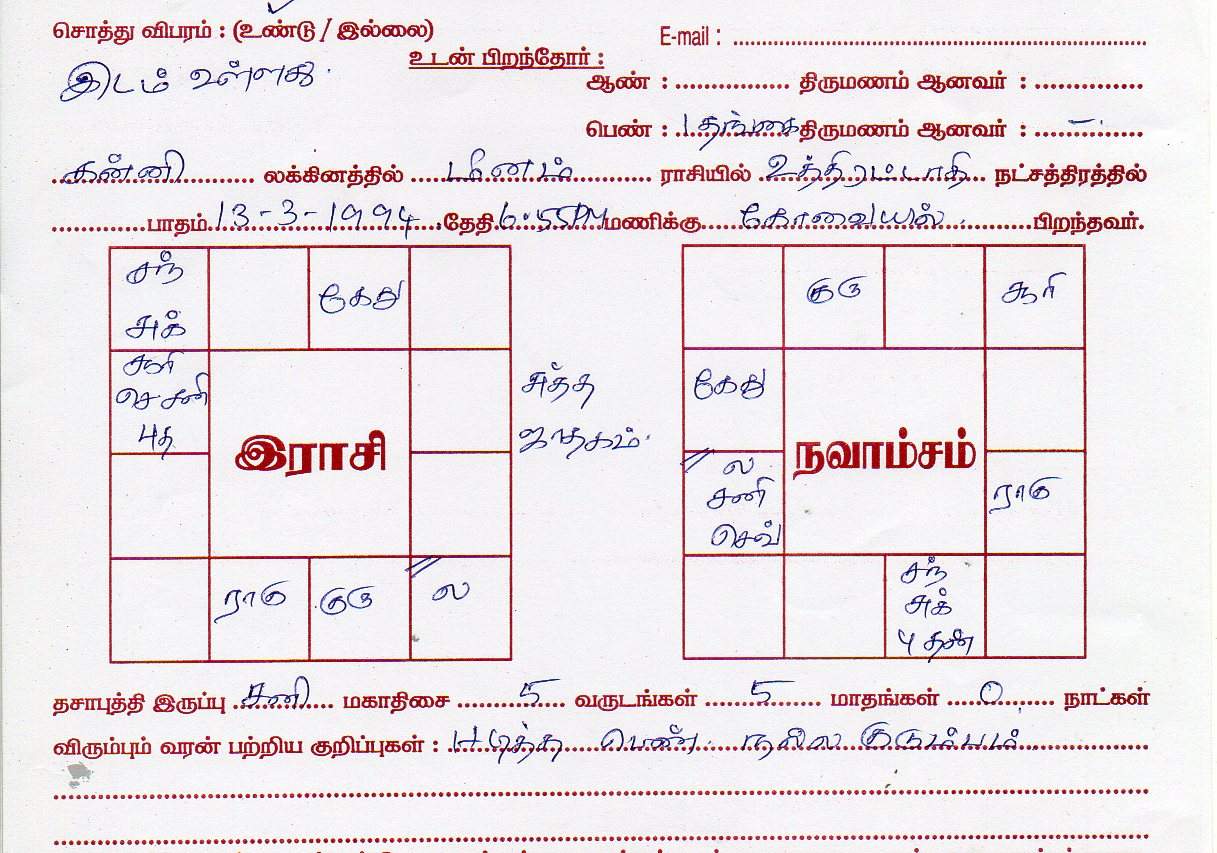 சொத்து விபரம் : (உண்டு / இல்லை)
E-mail : ....................
இடம் உள்ளது.
உடன் பிறந்தோர் :
ஆண் : ............... திருமணம் ஆனவர் : ..............
பெண் : 1 தங்கை திருமணம் ஆனவர் : ..... – .....
கன்னி லக்கினத்தில் மீனம் ராசியில் உத்திரட்டாதி நட்சத்திரத்தில்
.............பாதம் 13-3-1994 தேதி 6.55PM மணிக்கு கோவையில் பிறந்தவர்.
சந்
சுக்
கேது
சூரி
செ சனி
புத
இராசி
சுத்த
ஜாதகம்.
ராகு
குரு
ல
குரு
சூரி
கேது
ல
சனி
செவ்
நவாம்சம்
ராகு
சந்
சுக்
புதன்
தசாபுத்தி இருப்பு சனி மகாதிசை 5 வருடங்கள் 5 மாதங்கள் 0 நாட்கள்
விரும்பும் வரன் பற்றிய குறிப்புகள் : படித்த பெண். நல்ல குடும்பம்